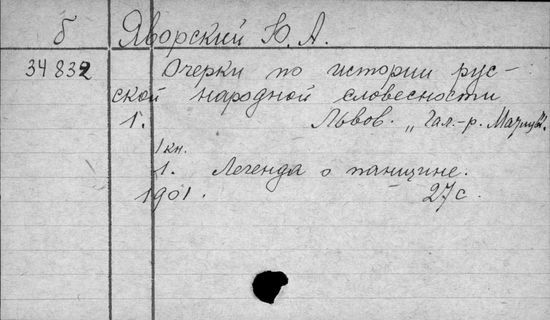 б Яворский Ю. А.
34 832 Очерки по истории рус-
ской народной словесности
1. Львов. „Гал.-р. Матица".
1 кн.
1. Легенда о панщине.
1901. 27 с.